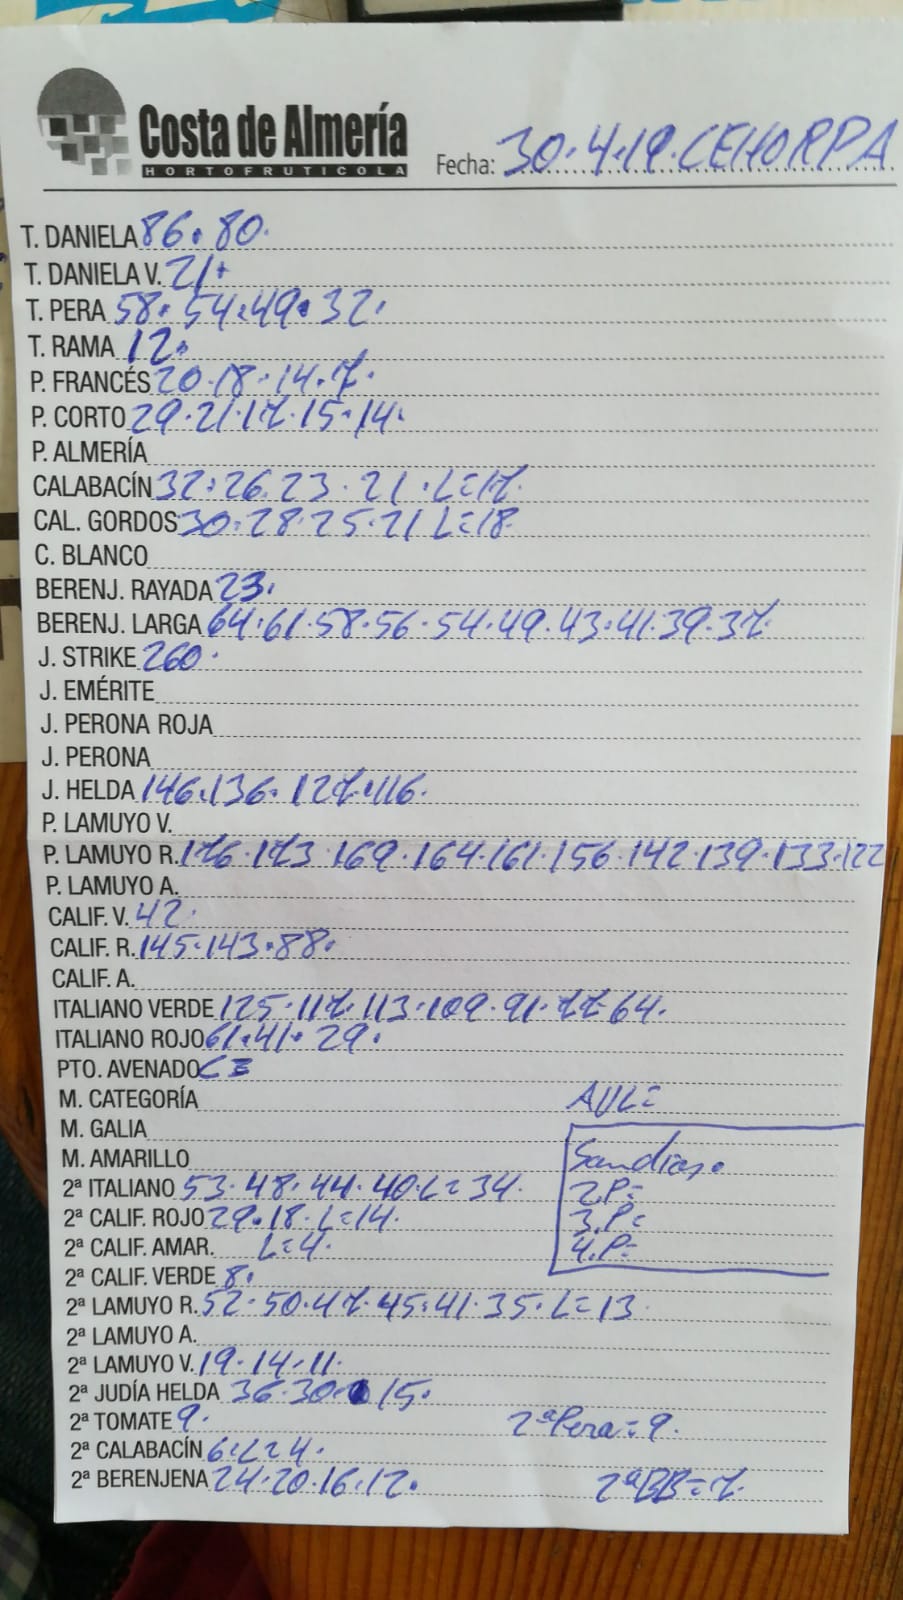 Costa de Almería
HORTOFRUTICOLA
Fecha: 30.4.19.CEHORPA
T. DANIELA 86. 80.
T. DANIELA V. 21.
T. PERA 58. 54.49. 32.
T. RAMA 12.
P. FRANCÉS 20.18.14.7.
P. CORTO 29.21.17.15.14.
P. ALMERÍA
CALABACÍN 32.26.23.21.L=17.
CAL. GORDOS 30.28.25.21 L=18.
C. BLANCO
BERENJ. RAYADA 23.
BERENJ. LARGA 64.61.58.56.54.49.43.41.39.37.
J. STRIKE 260.
J. EMÉRITE
J. PERONA ROJA
J. PERONA
J. HELDA 146.136.127.116.
P. LAMUYO V.
P. LAMUYO R. 176.173.169.164.161.156.142.139.133.122
P. LAMUYO A.
CALIF. V. 42.
CALIF. R. 145.143.88.
CALIF. A.
ITALIANO VERDE 125.117.113.109.91.77.64.
ITALIANO ROJO 61.41.29.
PTO. AVENADO
M. CATEGORÍA AVL=
M. GALIA
M. AMARILLO Sandias.
2ª ITALIANO 53.48.44.40.L=34. 2.P=
2ª CALIF. ROJO 29.18.L=14. 3.P=
2ª CALIF. AMAR. L=4. 4.P=
2ª CALIF. VERDE 8.
2ª LAMUYO R. 52.50.47.45.41.35.L=13
2ª LAMUYO A.
2ª LAMUYO V. 19.14.11.
2ª JUDÍA HELDA 36.30. 15.
2ª TOMATE 9. 2ªPera=9.
2ª CALABACÍN 6.L=4.
2ª BERENJENA 24.20.16.12. 2ªBB=7.